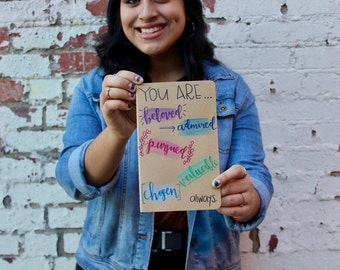 YOU ARE...
beloved
→ admired
pursued
valuable
chosen
always.